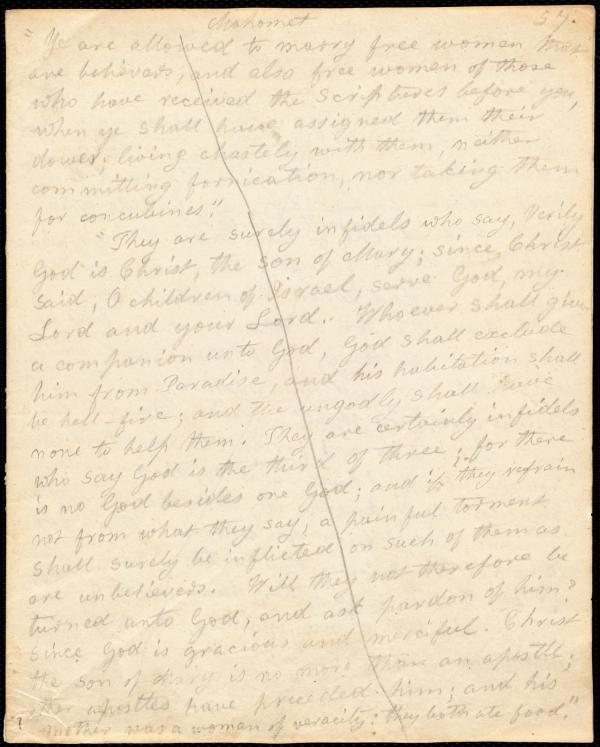 Mahomet 57.
"Ye are allowed to marry free women that
are believers, and also free women of those
who have received the Scriptures before you,
when ye shall have assigned them their
dower; living chastely with them, neither
committing fornication, nor taking them
for concubines."
"They are surely infidels who say, Verily
God is Christ, the son of Mary; since Christ
said, O children of Israel, serve God, my
Lord and your Lord. Whoever shall give
a companion unto God, God shall exclude
him from Paradise, and his habitation shall
be hell-fire; and the ungodly shall have
none to help them. They are certainly infidels
who say God is the third of three; for there
is no God besides one God; and if they refrain
not from what they say, a painful torment
shall surely be inflicted on such of them as
are unbelievers. Will they not therefore be
turned unto God, and ask pardon of him?
since God is gracious and merciful. Christ
the son of Mary is no more than an apostle;
other apostles have preceded him; and his
mother was a woman of veracity: they both ate food."